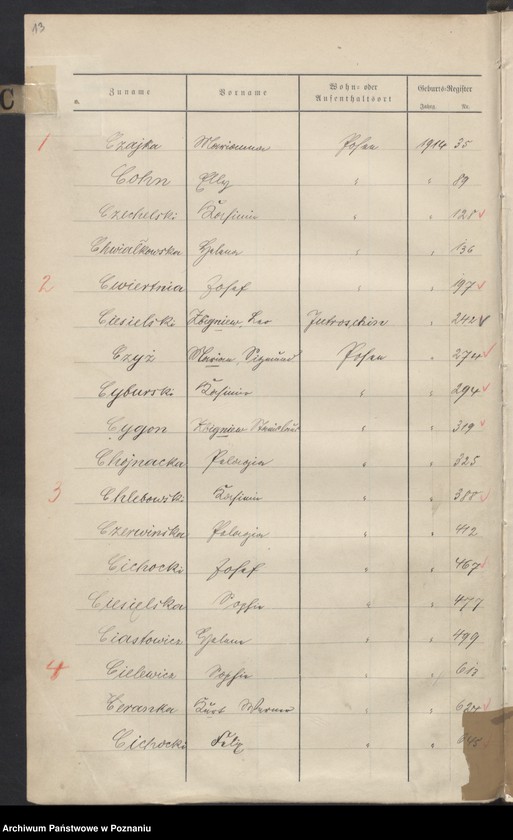 13
C
Zuname Vorname Wohn- oder Aufenthaltsort Geburts-Register
Jahrg. Nr.
1 Czajka Marianna Posen 1914 35
Cohn Elly " " 89
Czechelski Kasimir " " 128
Chwiałkowska Helena " " 136
2 Cwiertnia Josef " " 197
Ciesielski Zbigniew Leo Jutroschin " 242
Czyż Marian Sigmund Posen " 274
Cyburski Kasimir " " 294
Cygon Zbigniew Stanislaus " " 319
Chojnacka Pelagia " " 325
3 Chlebowski Kasimir " " 380
Czerwinska Pelagia " " 412
Cichocki Josef " " 467
Ciesielska Sophie " " 477
Ciastowicz Helene " " 499
4 Cielewicz Sophie " " 613
Ceranka Kurt Werner " "
Cichocki Felix " "
Archiwum Państwowe w Poznaniu